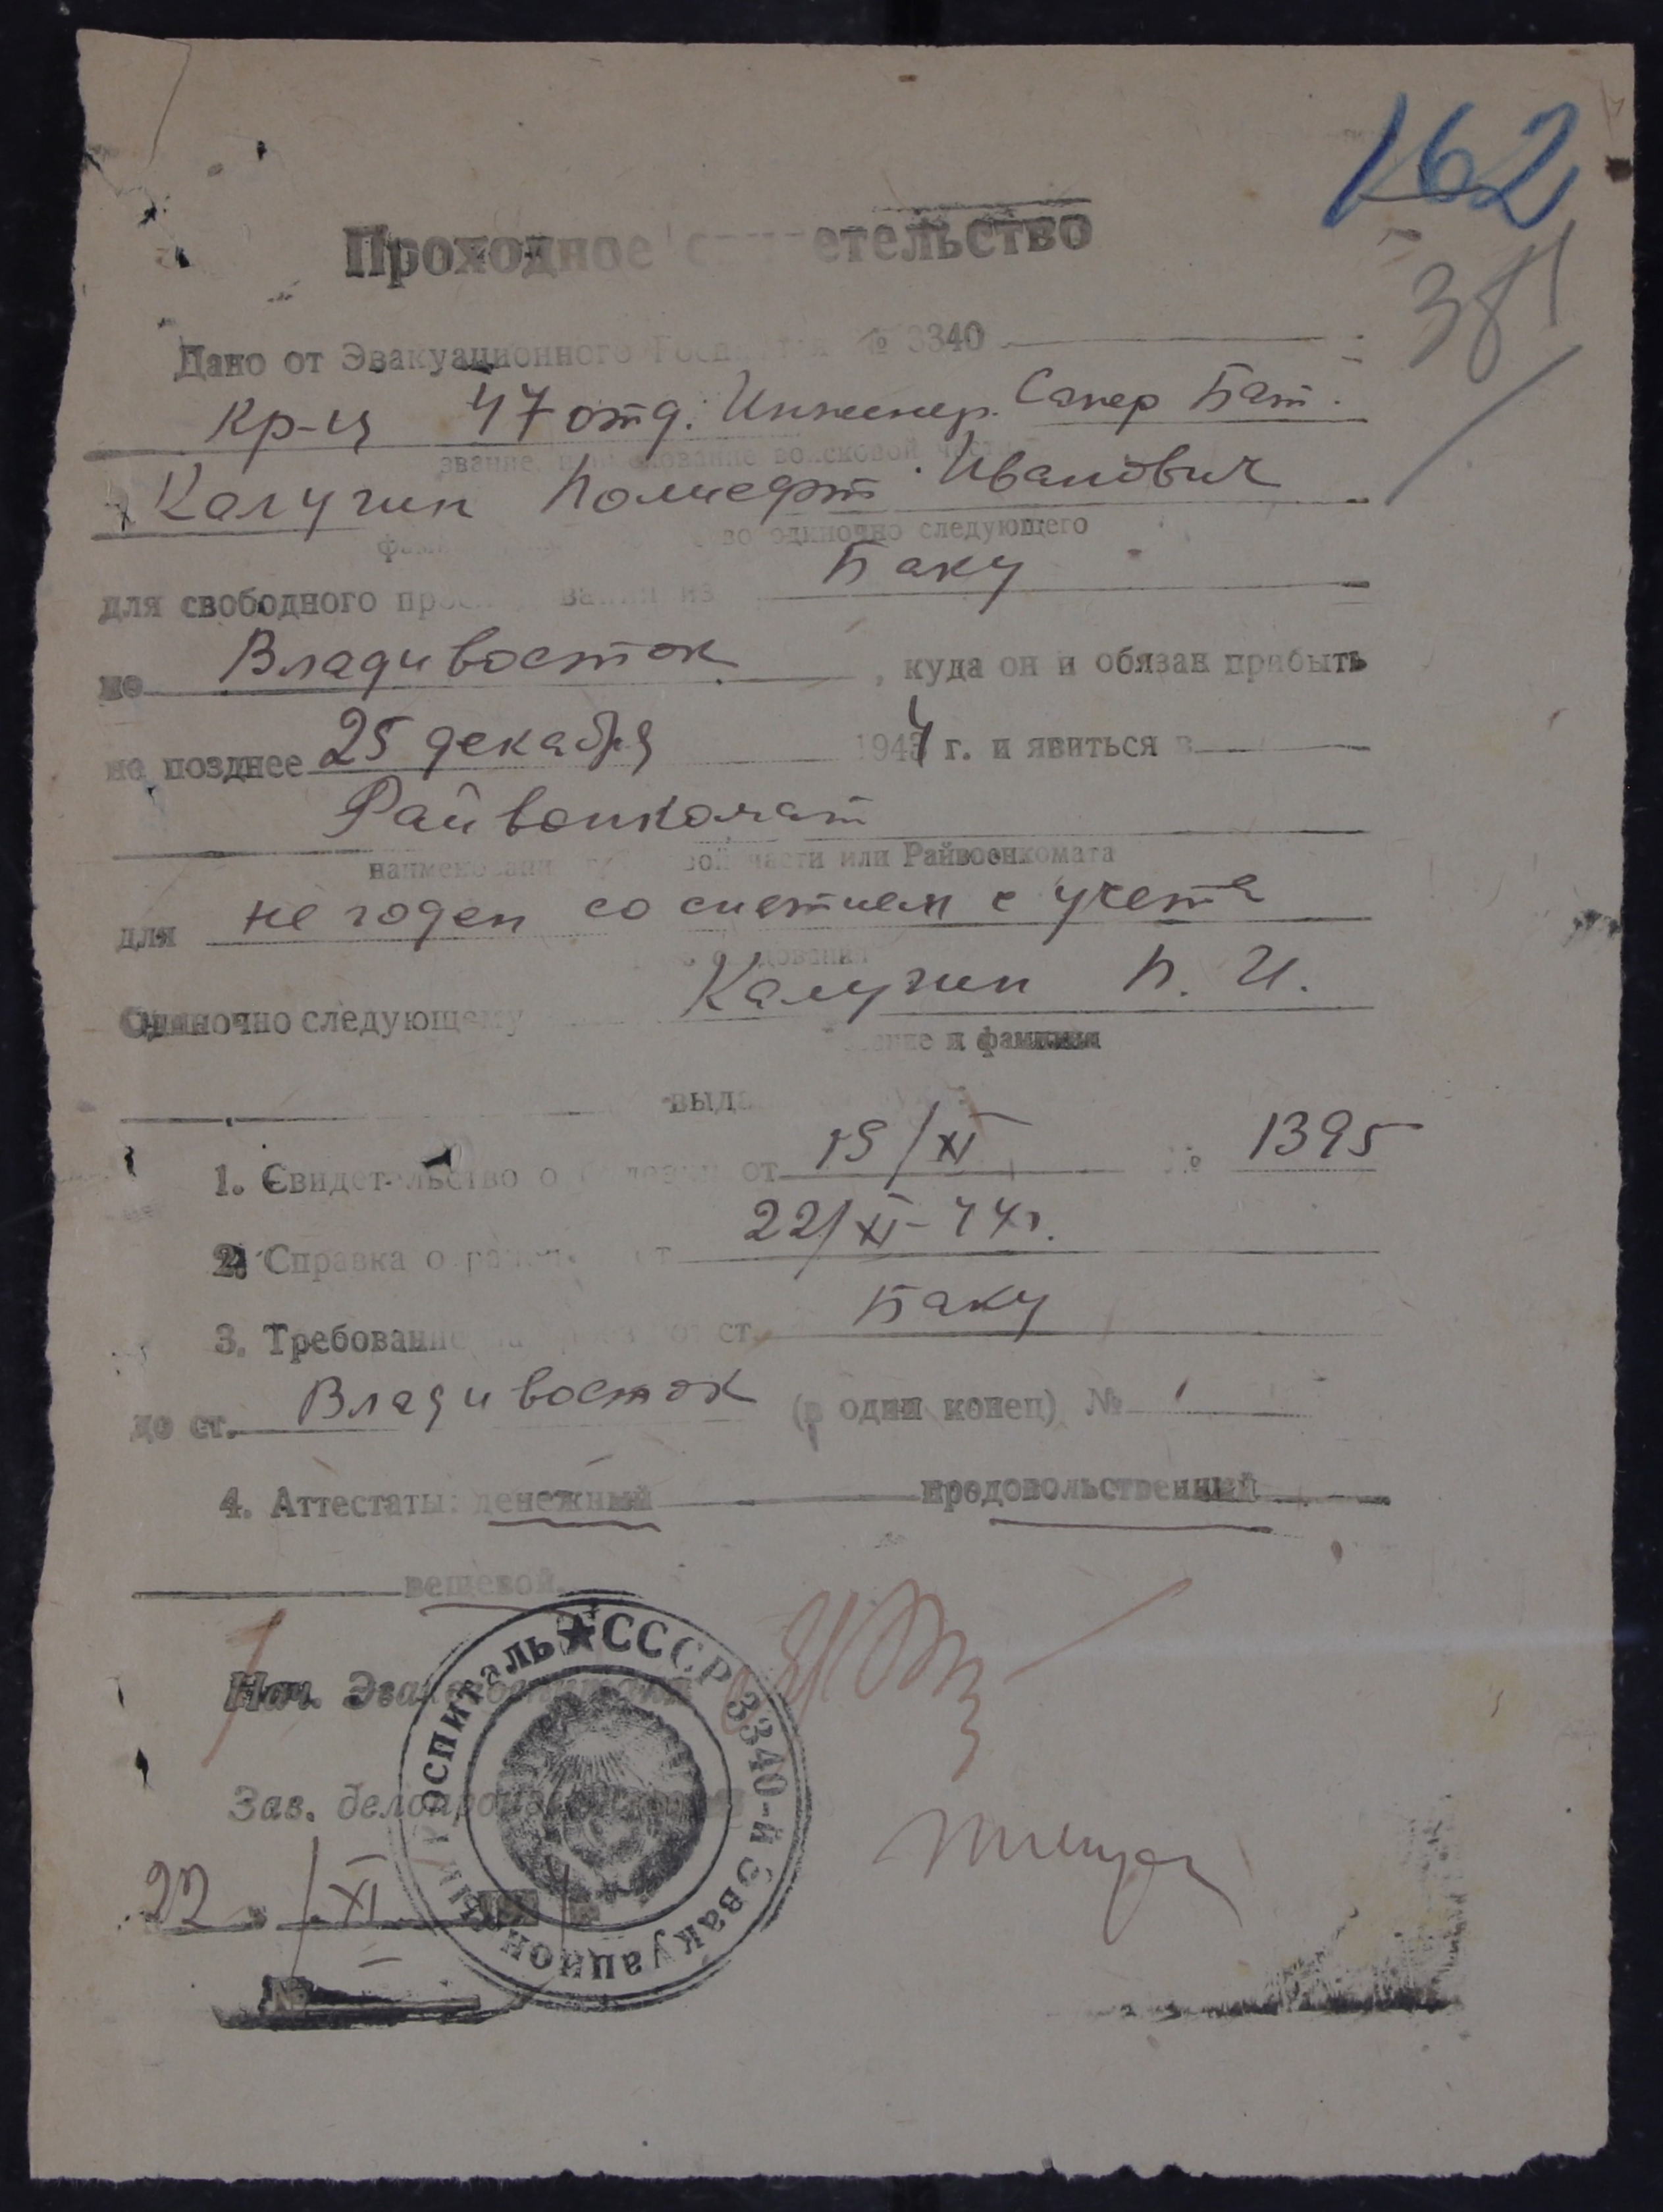 162
381
Проходное свидетельство
Дано от Эвакуационного Госпиталя № 3340
кр-ц 47 отд. Инженер. Сапер Бат.
звание, наименование войсковой части
Калугин Иванович
во одиночно следующего
для свободного проследования из Баку
до Владивосток, куда он и обязан прибыть
не позднее 25 декабря 1944 г. и явиться в
Райвоинкомат
наименование войсковой части или Райвоенкомата
для не годен со снятием с учета
следования
Одиночно следующему Калугин П. И.
звание и фамилия
выданы
1. Свидетельство о болезни от 19/XI № 1395
2. Справка о ранении от 22/XI-44г.
3. Требование от ст. Баку
до ст. Владивосток (в один конец) №
4. Аттестаты: денежный продовольственный
вещевой.
Нач. Эвакогоспиталя
Зав. делопроизводством
22 XI
№
СССР 3340-й Эвакуационный госпиталь